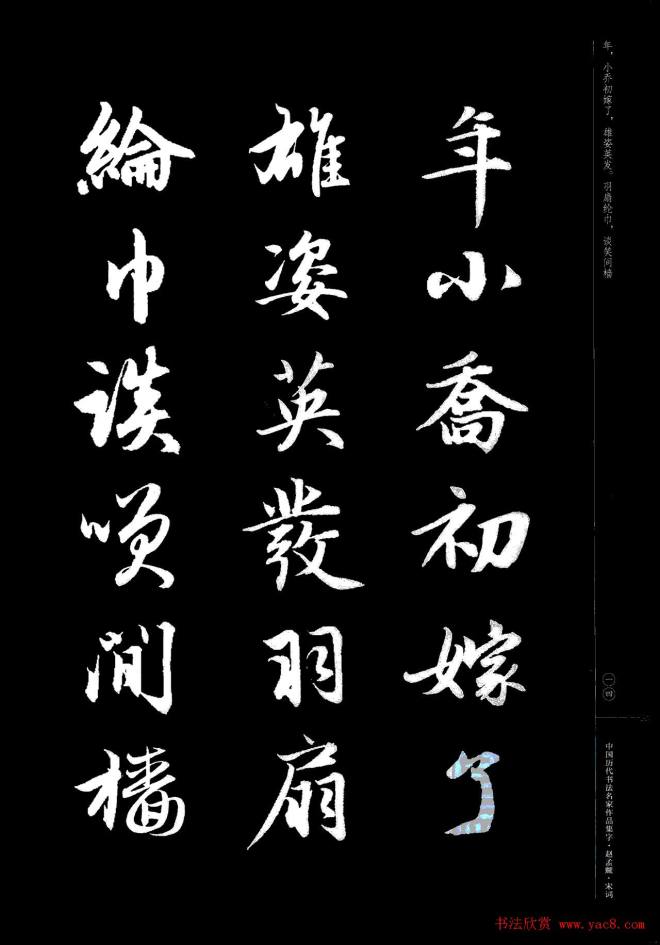 年，小乔初嫁了，雄姿英发。羽扇纶巾，谈笑间樯
年小喬初嫁了
雄姿英發羽扇
綸巾談咲間檣
一四
中国历代书法名家作品集字·赵孟頫·宋词
书法欣赏 www.yac8.com